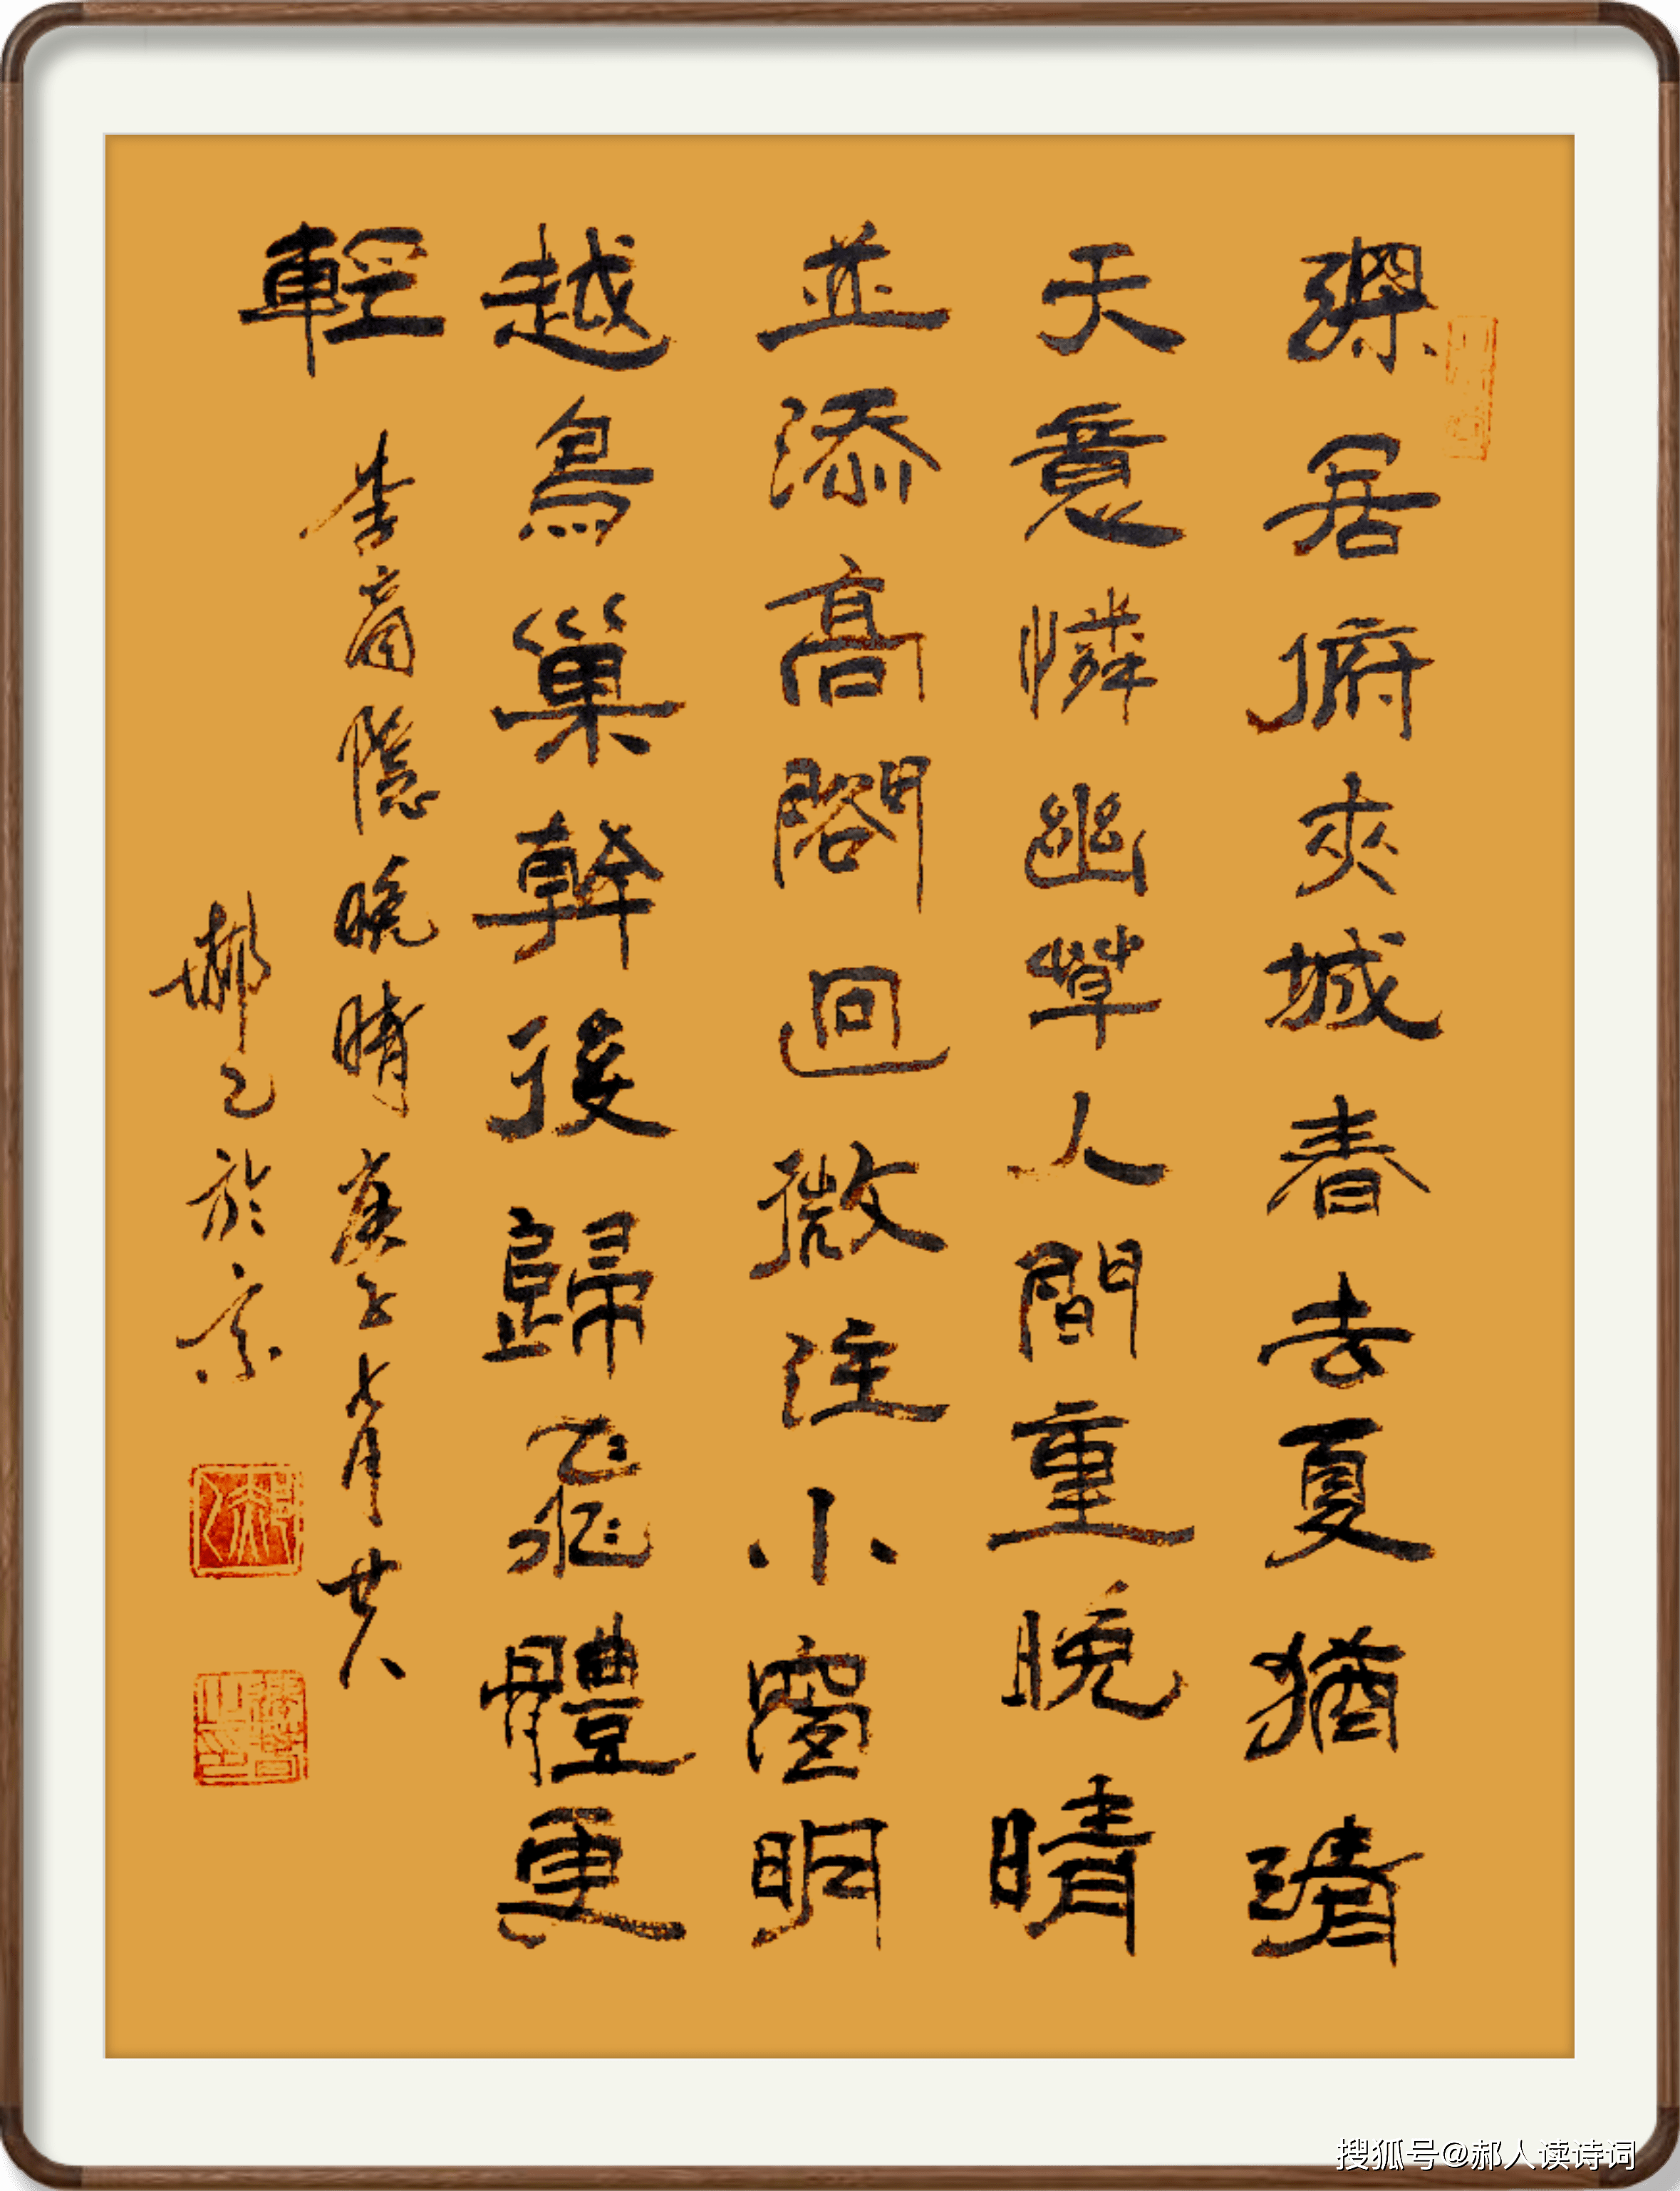 深居俯夾城春去夏猶清
天意憐幽草人間重晚晴
並添高閣迥微注小窗明
越鳥巢幹後歸飛體更
輕
李商隱晚晴庚子七月廿八
郝乙於京
搜狐号@郝人读诗词